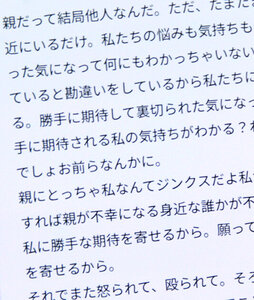 親だって結局他人なんだ。ただ、たまたま
近にいるだけ。私たちの悩みも気持ちも
った気になって何にもわかっちゃいない
ていると勘違いをしているから私たちに
る。勝手に期待して裏切られた気になっ
手に期待される私の気持ちがわかる？わ
でしょお前らなんかに。
親にとっちゃ私なんてジンクスだよ私
すれば親が不幸になる身近な誰かが不
私に勝手な期待を寄せるから。願って
を寄せるから。
それでまた怒られて、殴られて。そろ